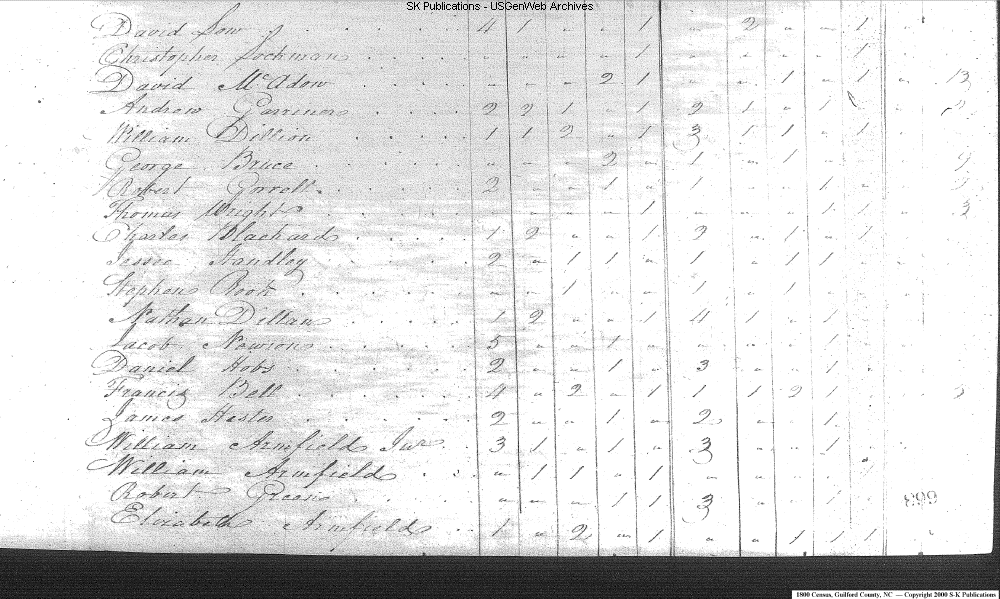 SK Publications - USGenWeb Archives
David Low 4 1 " " 1 " 2 " " 1 "
Christopher Lochman " " " " 1 " " " " "
David McAdow " " " 2 1 " " 1 " 1 " 13
Andrew 2 2 1 " 1 2 1 " 1 "
William Dillian 1 1 2 " 1 3 1 1 " 1 "
George Bruce " " " 2 " 1 " 1 " " 9
Robert Gorrell 2 " " 1 " 1 " " 1 "
Thomas Wright " " " " 1 " " " 1 1 " 3
Charles Blachard 1 2 " " 1 2 " 1 " 1
Jessee Standley 2 " 1 1 " 1 " 1 1 "
Stephen " " 1 " " 1 " 1 " "
Nathan Dillan 1 2 " " 1 4 1 " 1 "
Jacob Newsom 5 " " 1 " " " " 1 "
Daniel Hobs 2 " " 1 " 3 " " 1 "
Francis Bell 4 " 2 " 1 1 1 2 1 "
James 2 " " 1 " 2 " " 1 "
William Armfield Junr 3 1 " 1 " 3 " " 1 "
William Armfield " 1 1 " 1 " " " "
Robert Green " " " 1 1 3 " " 1 "
663
Elizabeth Armfield 1 " 2 " 1 " " 1 1 1
1800 Census, Guilford County, NC — Copyright 2000 S-K Publications